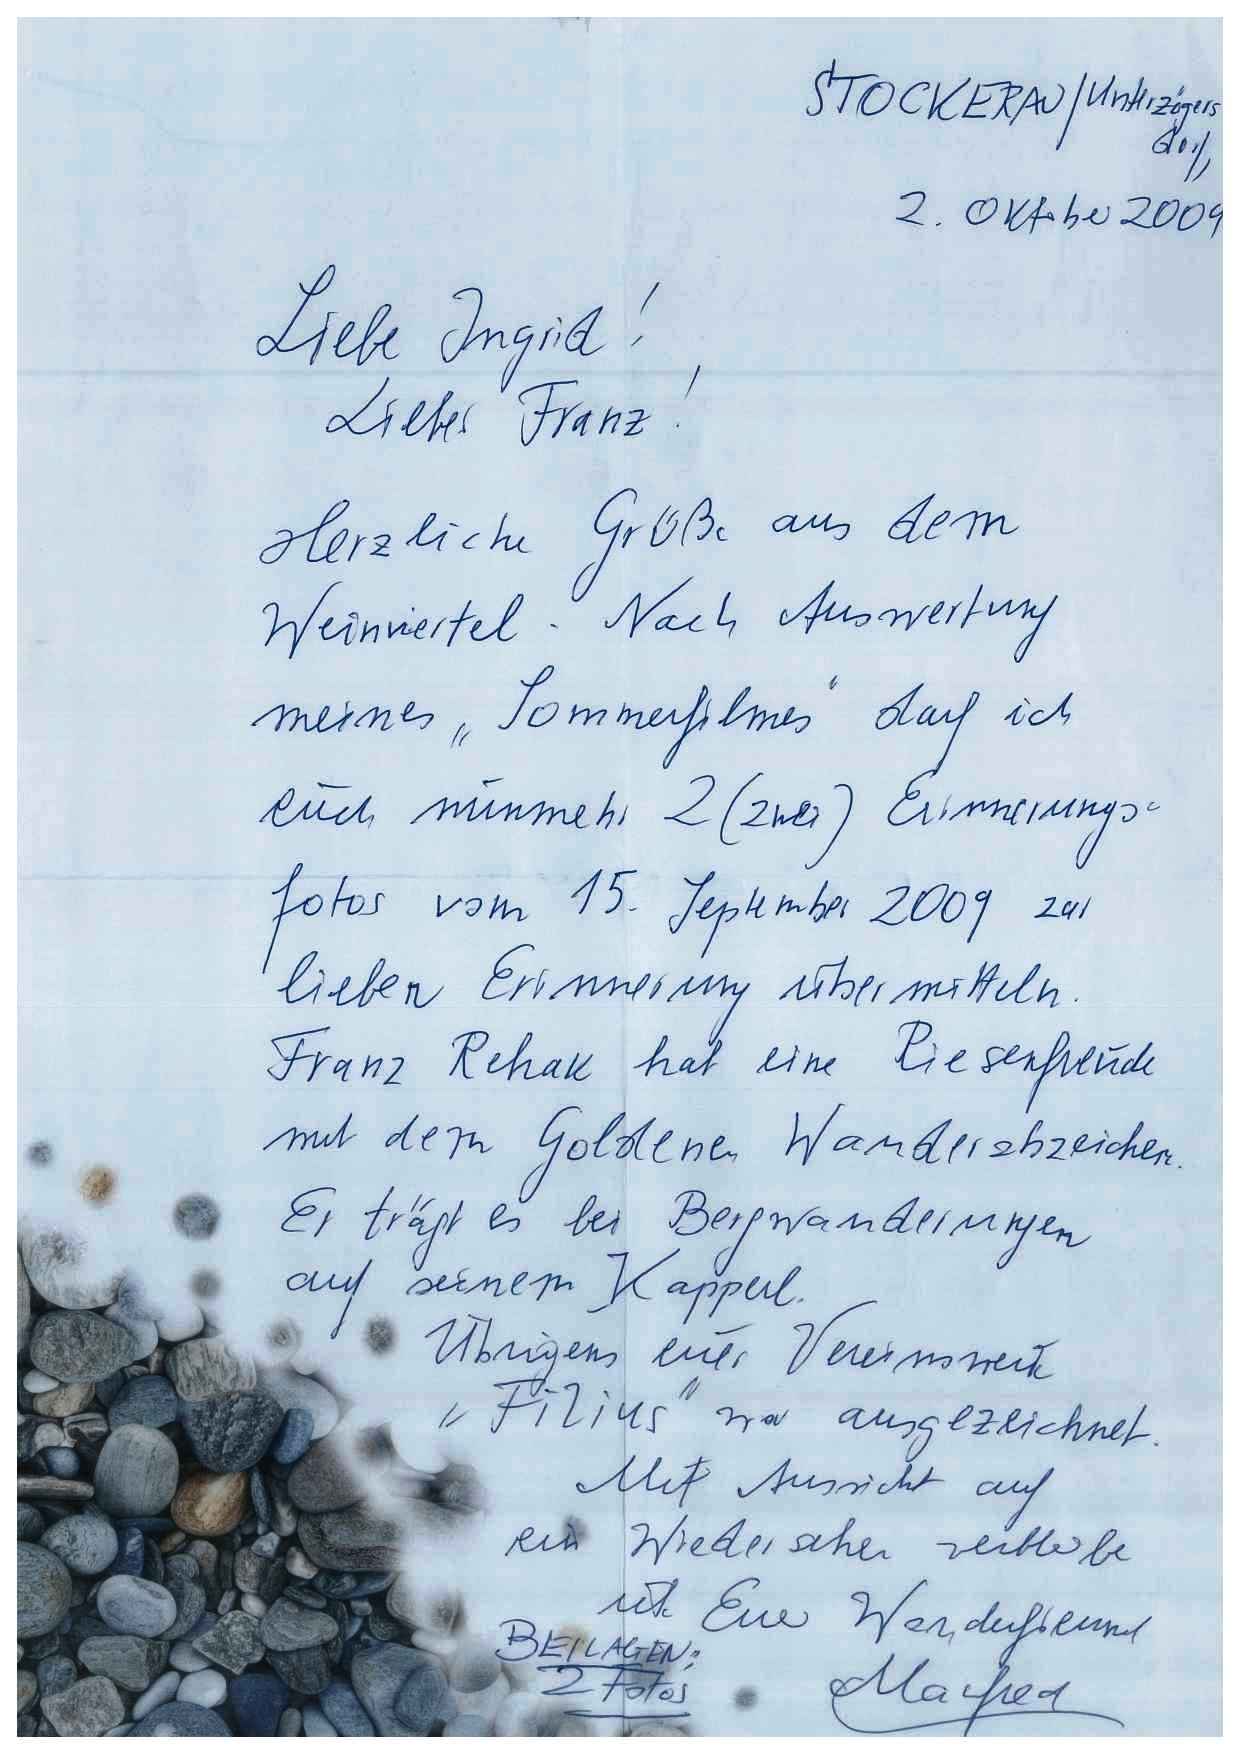 STOCKERAU/Unterzögers
dorf,
2. Oktober 2009
Liebe Ingrid!
Lieber Franz!
Herzliche Grüße aus dem
Weinviertel. Nach Auswertung
meines „Sommerfilmes“ darf ich
euch nunmehr 2 (zwei) Erinnerungs-
fotos vom 15. September 2009 zur
lieben Erinnerung übermitteln.
Franz Rehak hat eine Riesenfreude
mit dem Goldenen Wanderabzeichen.
Er trägt es bei Bergwanderungen
auf seinem Kapperl.
Übrigens euer Vereinswerk
„Filius“ war ausgezeichnet.
Mit Aussicht auf
ein Wiedersehen verbleibe
ich Euer Wanderfreund
BEILAGEN:
2 Fotos
Manfred